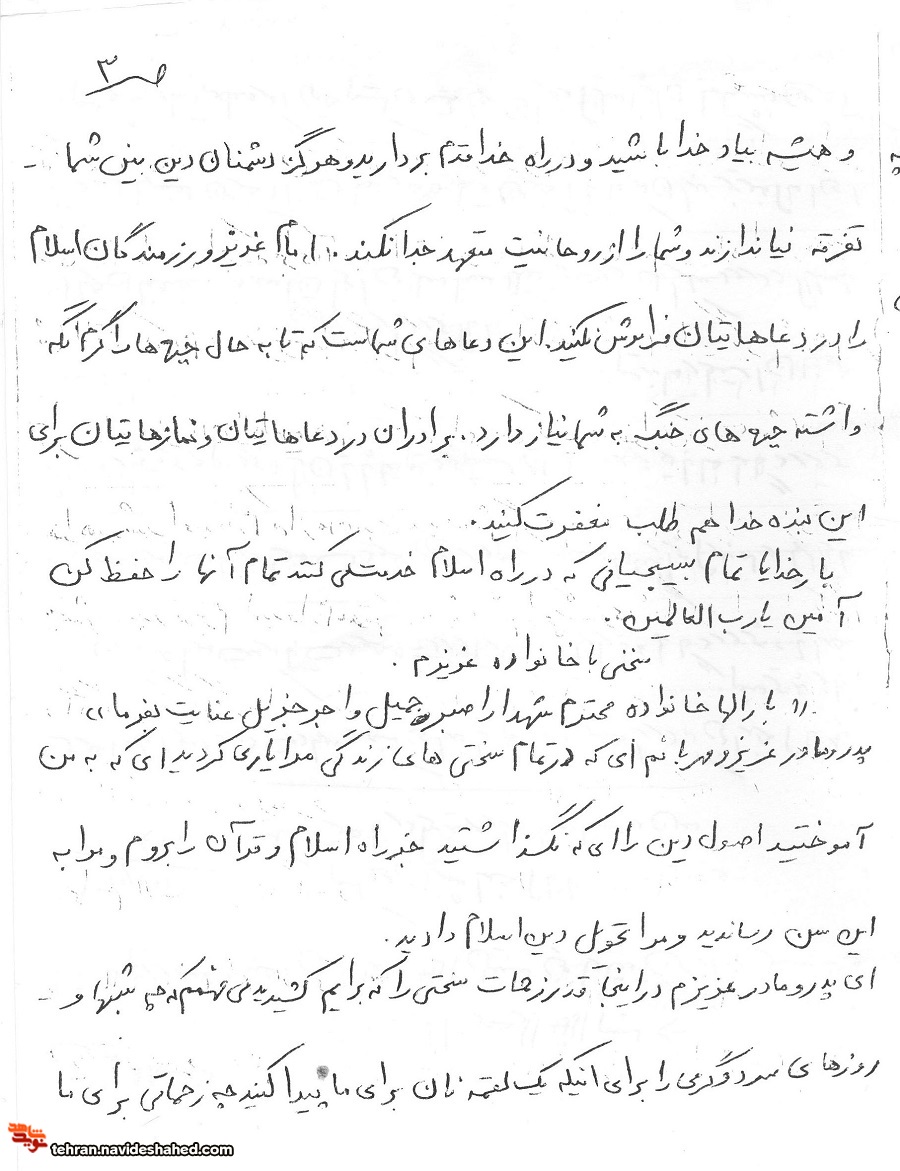 ص ۳
و همیشه بیاد خدا باشید و در راه خدا قدم بردارید و هرگز دشمنان دین بین شما -
تفرقه نیاندازند و شما را از روحانیت متعهد جدا نکند. امام عزیز و رزمندگان اسلام
را در دعاهایتان فراموش نکنید. این دعاهای شماست که تا به حال جبهه ها را گرم نگه
داشته جبهه های جنگ به شما نیاز دارد. برادران در دعاهایتان و نمازهایتان برای
این بنده خدا هم طلب مغفرت کنید.
بار خدایا تمام بسیجیانی که در راه اسلام خدمت می کنند تمام آنها را حفظ کن
آمین یا رب العالمین.
سخنی با خانواده عزیزم.
« بارالها خانواده محترم شهدا را صبر جمیل و اجر جزیل عنایت بفرما »
پدر و مادر عزیز و مهربانم ای که در تمام سختی های زندگی مرا یاری کردید ای که به من
آموختید اصول دین را ای که نگذاشتید جز راه اسلام و قرآن را بروم و مرا به
این سن رساندید و مرا تحویل دین اسلام دادید.
ای پدر و مادر عزیزم در اینجا قدر زحمات سختی را که برایم کشیدید می فهمم که چه شبها و -
روزهای سرد و گرمی را برای اینکه یک لقمه نان برای ما پیدا کنید چه زحماتی برای ما
نوید شاهد
tehran.navideshahed.com